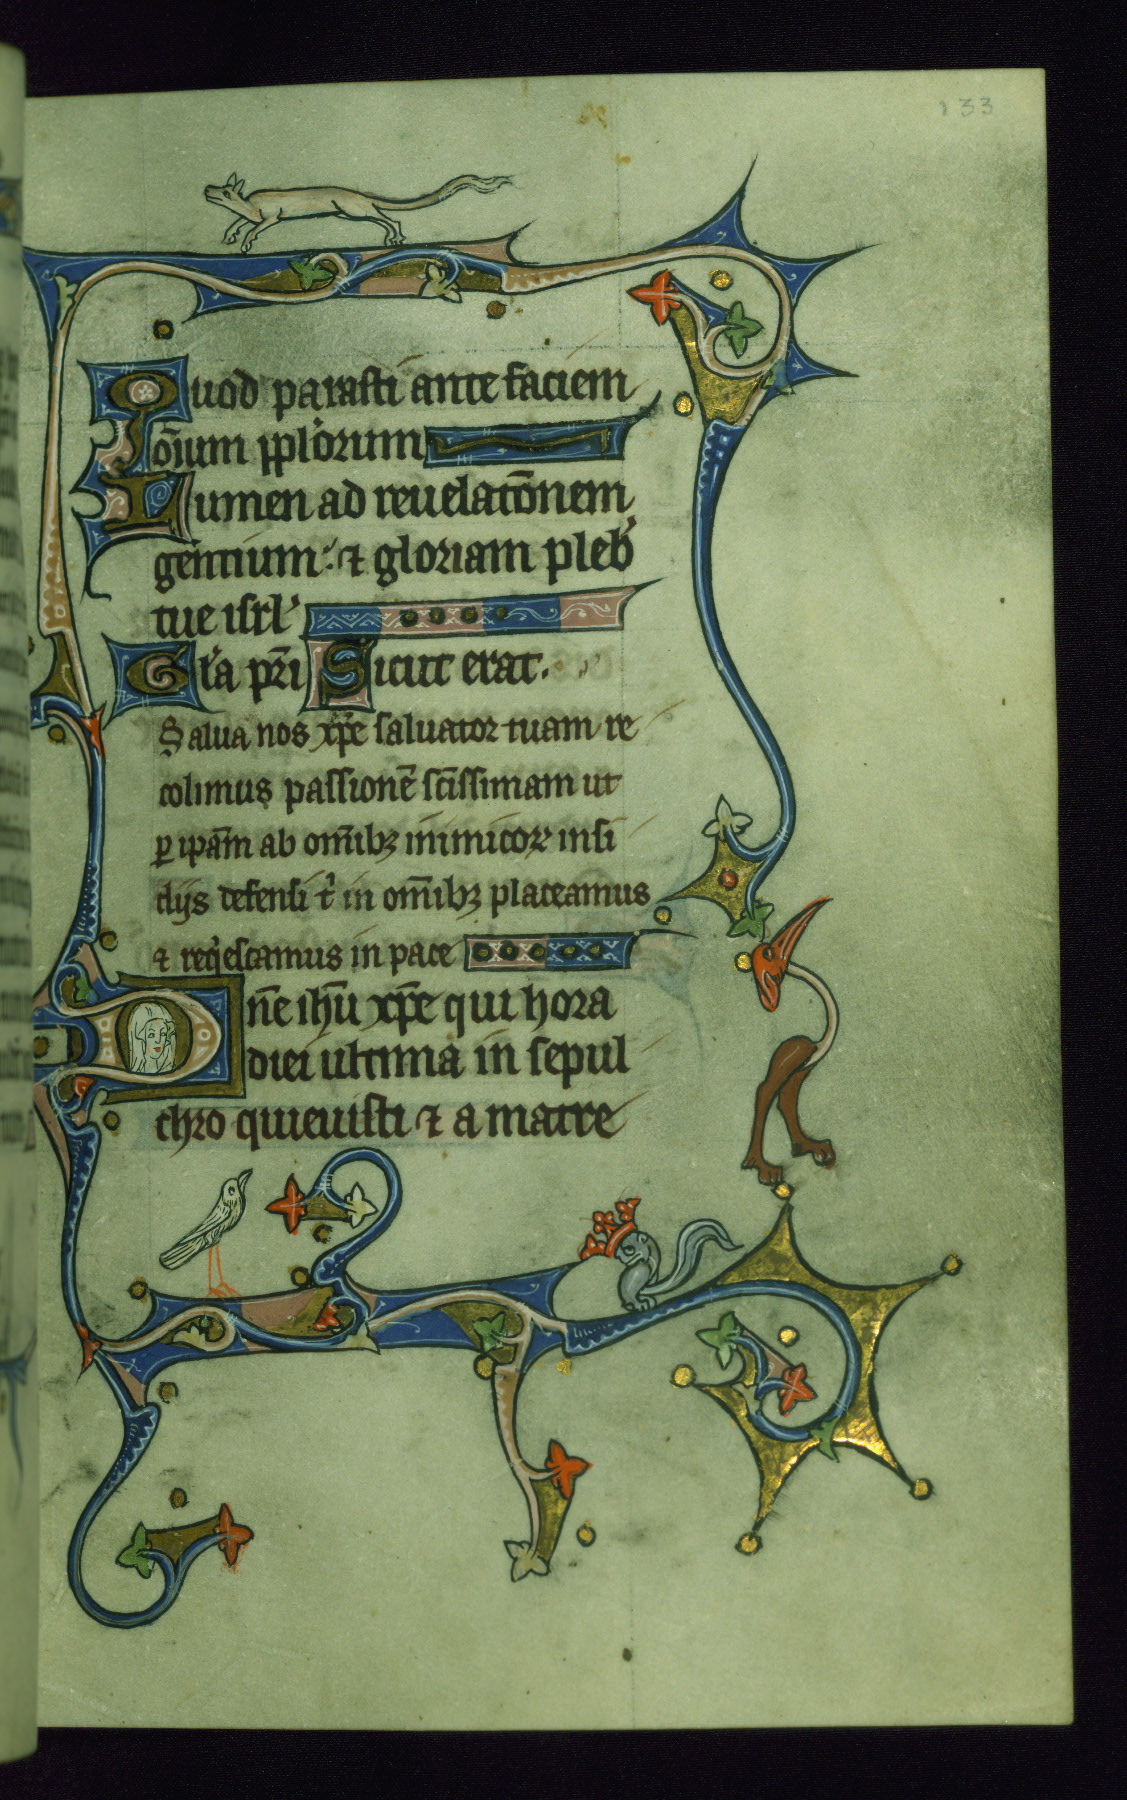 133
Quod parasti ante faciem
om̅ium pplor̉um
Lumen ad reuelato̅nem
gentium: ⁊ gloriam pleb̉
tue isrl̉
Gl̉a pr̅i Sicut erat.
Salua nos xp̅e saluator tuam re
colimus passione̅ sc̅issimam ut
ꝑ ipa̅m ab om̅ibꝫ inimicoꝝ insi
dijs defensi t̉ in om̅ibꝫ placeamus
⁊ reqỉescamus in pace
Dn̅e ih̅u xp̅e qui hora
diei ultima in sepul
chro quieuisti ⁊ a matre